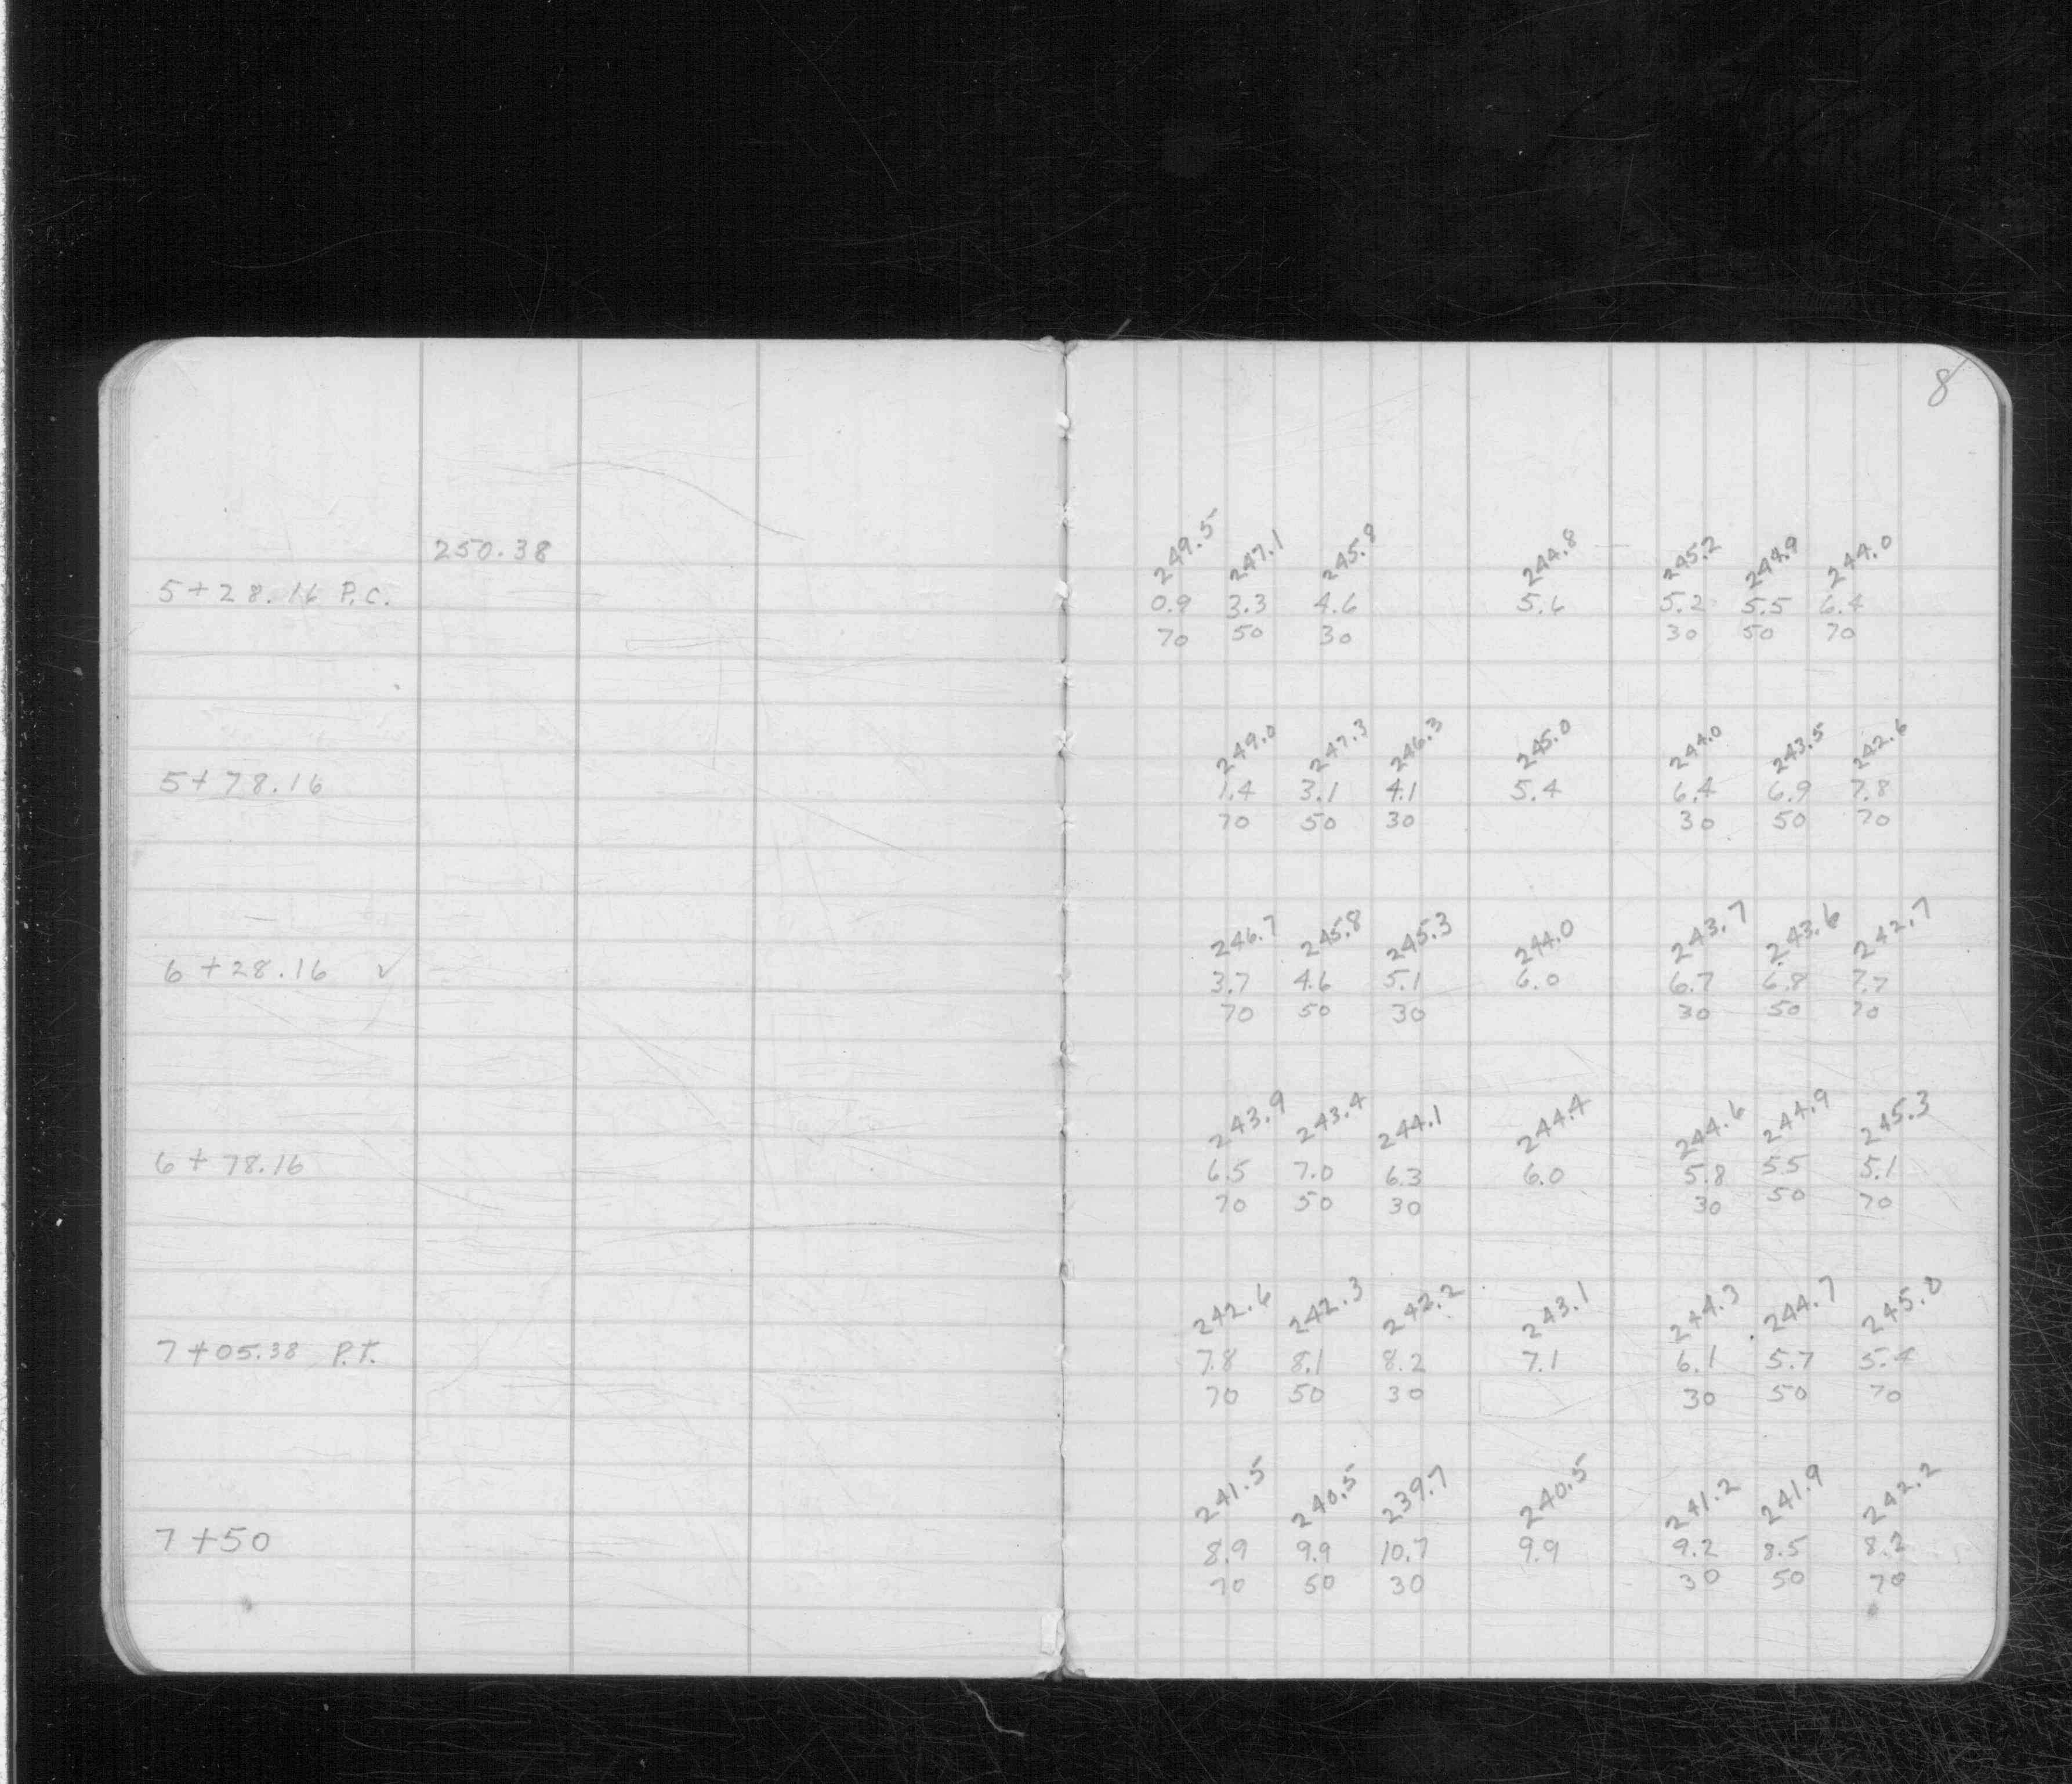 8
250.38
249.5 247.1 245.8 244.8 245.2 244.9 244.0
5+28.16 P.C. 0.9 3.3 4.6 5.6 5.2 5.5 6.4
70 50 30 30 50 70
249.0 247.3 246.3 245.0 244.0 243.5 242.6
5+78.16 1.4 3.1 4.1 5.4 6.4 6.9 7.8
70 50 30 30 50 70
246.7 245.8 245.3 244.0 243.7 243.6 242.7
6+28.16 ✓ 3.7 4.6 5.1 6.0 6.7 6.8 7.7
70 50 30 30 50 70
243.9 243.4 244.1 244.4 244.6 244.9 245.3
6+78.16 6.5 7.0 6.3 6.0 5.8 5.5 5.1
70 50 30 30 50 70
242.6 242.3 242.2 243.1 244.3 244.7 245.0
7+05.38 P.T. 7.8 8.1 8.2 7.1 6.1 5.7 5.4
70 50 30 30 50 70
241.5 240.5 239.7 240.5 241.2 241.9 242.2
7+50 8.9 9.9 10.7 9.9 9.2 8.5 8.2
70 50 30 30 50 70